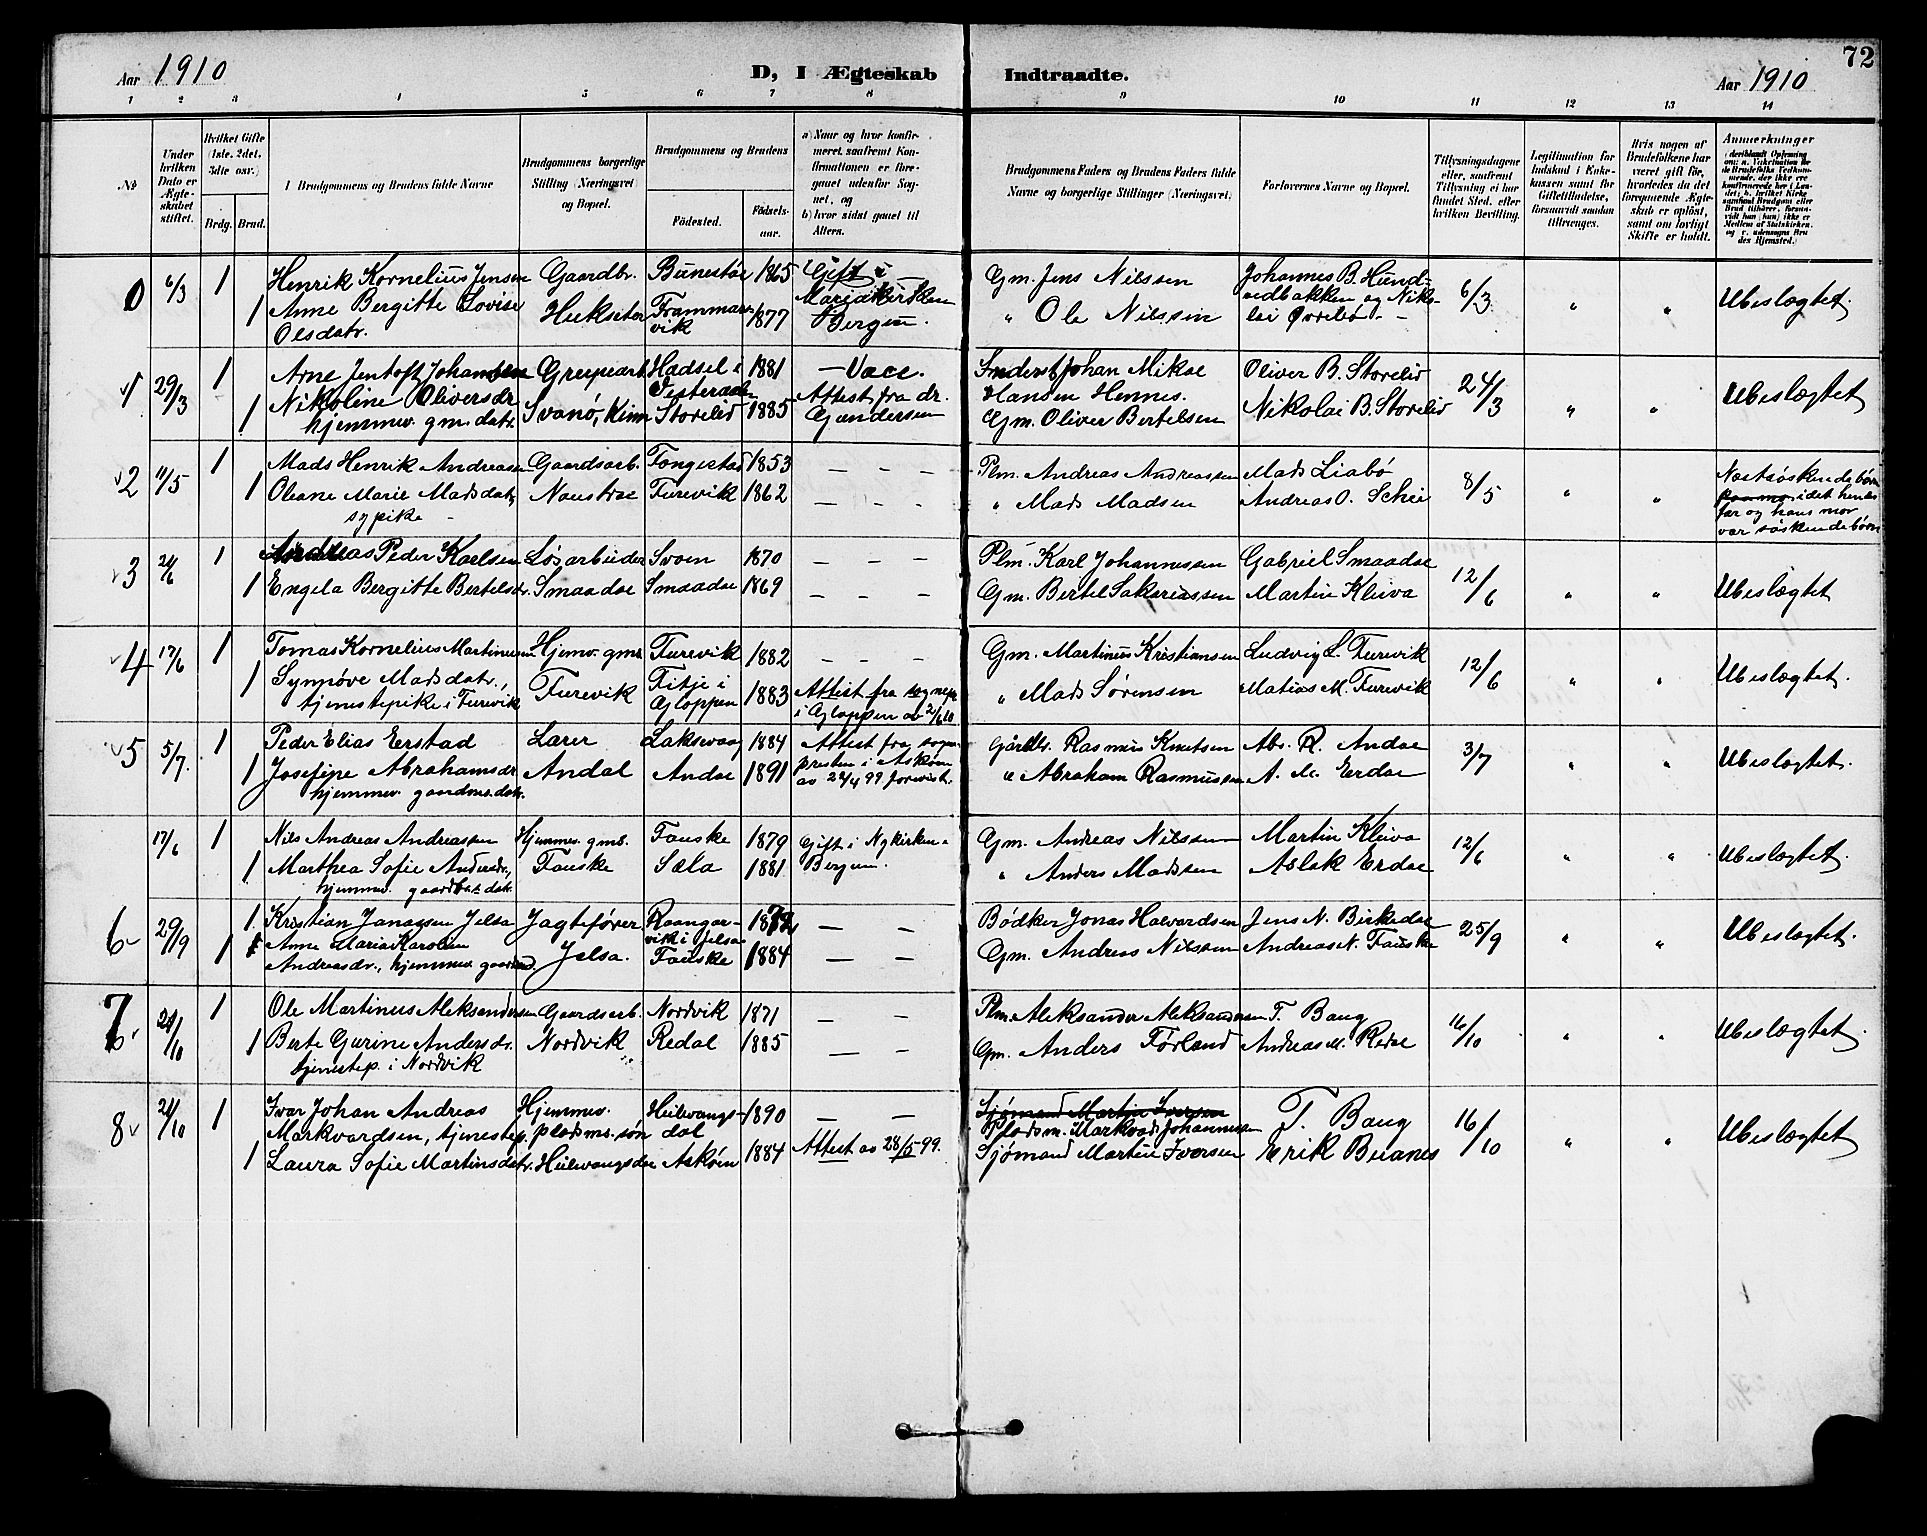 72
Aar 1910
D, I Ægteskab Indtraadte.
Aar 1910
1 2 3 4 5 6 7 8 9 10 11 12 13 14
No
Under hvilken Dato er Ægteskabet stiftet.
Hvilket Gifte (1ste, 2det, 3die osv.)
Brdg. Brud.
Brudgommens og Brudens fulde Navne
Brudgommens borgerlige Stilling (Næringsvei) og Bopæl.
Brudgommens og Brudens
Fødested. Fødselsaar.
a) Naar og hvor konfirmeret, saafremt Konfirmationen er foregaaet udenfor Sognet, og
b) hvor sidst gaaet til Alters.
Brudgommens Faders og Brudens Faders fulde Navne og borgerlige Stillinger (Næringsvei).
Forlovernes Navne og Bopæl.
Tillysningsdagene eller, saafremt Tillysning ei har fundet Sted, efter hvilken Bevilling.
Legitimation for Indskud i Enkekassen samt for Giftetilladelse, forsaavidt saadan tiltrænges.
Hvis nogen af Brudefolkene har været gift før, hvorledes da det foregaaende Ægteskab er opløst, samt om lovligt Skifte er holdt.
Anmerkninger
0 6/3 1 Henrik Kornelius Jensen Gaardbr. Bunestøl 1865 Gift i Gm. Jens Nilssen Johannes B. Hund- 6/3 " " Ubeslægtet.
1 Anne Bergitte Lovise Heksetor Frammarsvik 1877 Mariakirken " Ole Nilssen vedbakken og Niko-
Olsdatr. Bergen. lai Øvrelid
1 29/3 1 Arne Jentoft Johansen Hadsel i 1881 Vacc. Johan Mikal Oliver B. Storelid 24/3 " " Ubeslægtet
1 Nikoline Oliversdr Svanø, Kinn Vesteraalen Attest fra dr. Hansen Hennes.
hjemmev. gm. datr. Storelid 1885 Gundersen Gm. Oliver Bertelsen Nikolai B. Storelid
2 11/5 1 Mads Henrik Andreasen Gaardsarb. Tongestad 1853 – – – Plm. Andreas Andreassen Mads Liabø 8/5 " " Næstsøskendebørn
1 Oleane Marie Madsdatr, Naustdal Furevik 1862 – – – " Mads Madsen Andreas O. Schei idet hendes
sypike far og hans mor
var søskendebørn
3 24/6 1 Andreas Peder Karlsen Løsarbeider Svoen 1870 – – – Plm. Karl Johannessen Gabriel Smaadal 12/6 " " Ubeslægtet
1 Engela Bergitte Bertelsdr. Smaadal Smaadal 1869 – – – Gm. Bertel Sakariassen Martin Kleiva
4 17/6 1 Tomas Kornelius Martinussen Hjemv. gms. Furevik 1882 – – – Gm. Martinus Kristiansen Ludvig L. Furevik 12/6 " " Ubeslægtet.
1 Synnøve Madsdatr., Furevik Fitje i 1883 Attest fra sognepr " Mads Sørensen Matias M. Furevik
tjenestepike i Furevik Gloppen i Gloppen av 2/6 10
5 5/7 1 Peder Elias Erstad Lærer Laksevaag 1884 Attest fra sogne- Gårdbr. Rasmus Knutsen Abr. R. Andal 3/7 " " Ubeslægtet.
1 Josefine Abrahamsdr Andal Andal 1891 presten i Askøen " Abraham Rasmussen A. M. Erdal
hjemmev. gaardms. datr. av 24/4 99 forevist.
17/6 1 Nils Andreas Andreassen Hjemmev. gms. Fauske 1879 Gift i Nykirken Gm. Andreas Nilssen Martin Kleiva 12/6 " " Ubeslægtet.
1 Marthea Sofie Andersdr., Fauske Sæla 1881 Bergen. " Anders Madssen Aslak Erdal
hjemmev. gaardbr. datr.
6 29/9 1 Kristian Janassen Jelsa Jagtefører Raangar- 187 – – Bødker Jonas Halvardsen Jens N. Birkedal 25/9 " " Ubeslægtet.
1 Anne Maria Karoline Jelsa. vik i Jelsa
Andreasdr., hjemmev. Fauske 1884 – – Gm. Andreas Nilssen Andreas N. Fauske
7 21/10 1 Ole Martinus Aleksandersen Gaardsarb. Nordvik 1871 – – Plm. Aleksander Aleksandersen T. Baug 16/10 " " Ubeslægtet.
1 Berte Gurine Andersdr. Nordvik Redal 1885 – – Gm. Anders Førland Andreas M. Redal
tjenestep. i Nordvik
8 21/10 1 Ivar Johan Andreas Hjemmev. Heilevangs- 1890 – – Sjømand Martin Iversen T. Baug 16/10 " " Ubeslægtet
Markvardsen, tjenestep. pladsms. søn dal Pladsm. Markvard Johannessen
1 Laura Sofie Martinsdatr. Heilevangsdal Askøen 1884 Attest av 28/5 99. Sjømand Martin Iversen Erik Buanes